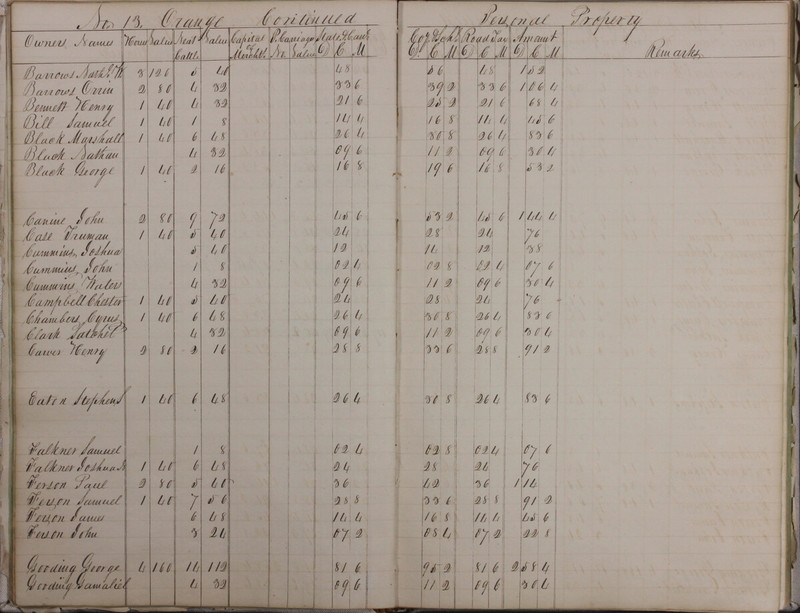 No 13, Orange Continued Personal Property
Owners Names Horses Value Neat Cattle Value Capital Mercht. P. Carriages No. Value D C M D C M Road Tax D C M Amount D C M Remarks
Barrows 3 120 5 40 48 56 48 152
Barrows Orrin 2 80 4 32 33 6 39 2 33 6 1 06 4
Bennett Henry 1 40 4 32 21 6 25 2 21 6 68 4
Bill Samuel 1 40 1 8 14 4 16 8 14 4 45 6
Black Marshall 1 40 6 48 26 4 30 8 26 4 83 6
Black Nathan 4 32 09 6 11 2 09 6 30 4
Black George 1 40 2 16 16 8 19 6 16 8 53 2
Canine John 2 80 9 72 45 6 53 2 45 6 1 44 4
Case Truman 1 40 5 40 24 28 24 76
Cummins Joshua 5 40 12 14 12 38
Cummins John 1 8 02 4 02 8 02 4 07 6
Cummins 4 32 09 6 11 2 09 6 30 4
Campbell Chester 1 40 5 40 24 28 24 76
Chambers Cyrus 1 40 6 48 26 4 30 8 26 4 83 6
Clark 4 32 09 6 11 2 09 6 30 4
Carver Henry 2 80 2 16 28 8 33 6 28 8 91 2
Eaton Stephen S 1 40 6 48 26 4 30 8 26 4 83 6
Falkner Samuel 1 8 02 4 02 8 02 4 07 6
Falkner Joshua 1 40 6 48 24 28 24 76
Ferson Paul 2 80 5 40 36 42 36 1 14
Ferson Samuel 1 40 7 56 28 8 33 6 28 8 91 2
Ferson James 6 48 14 4 16 8 14 4 45 6
Ferson John 3 24 07 2 08 4 07 2 22 8
Gooding George 4 160 14 112 81 6 95 2 81 6 2 58 4
Gooding Gamaliel 4 32 09 6 11 2 09 6 30 4